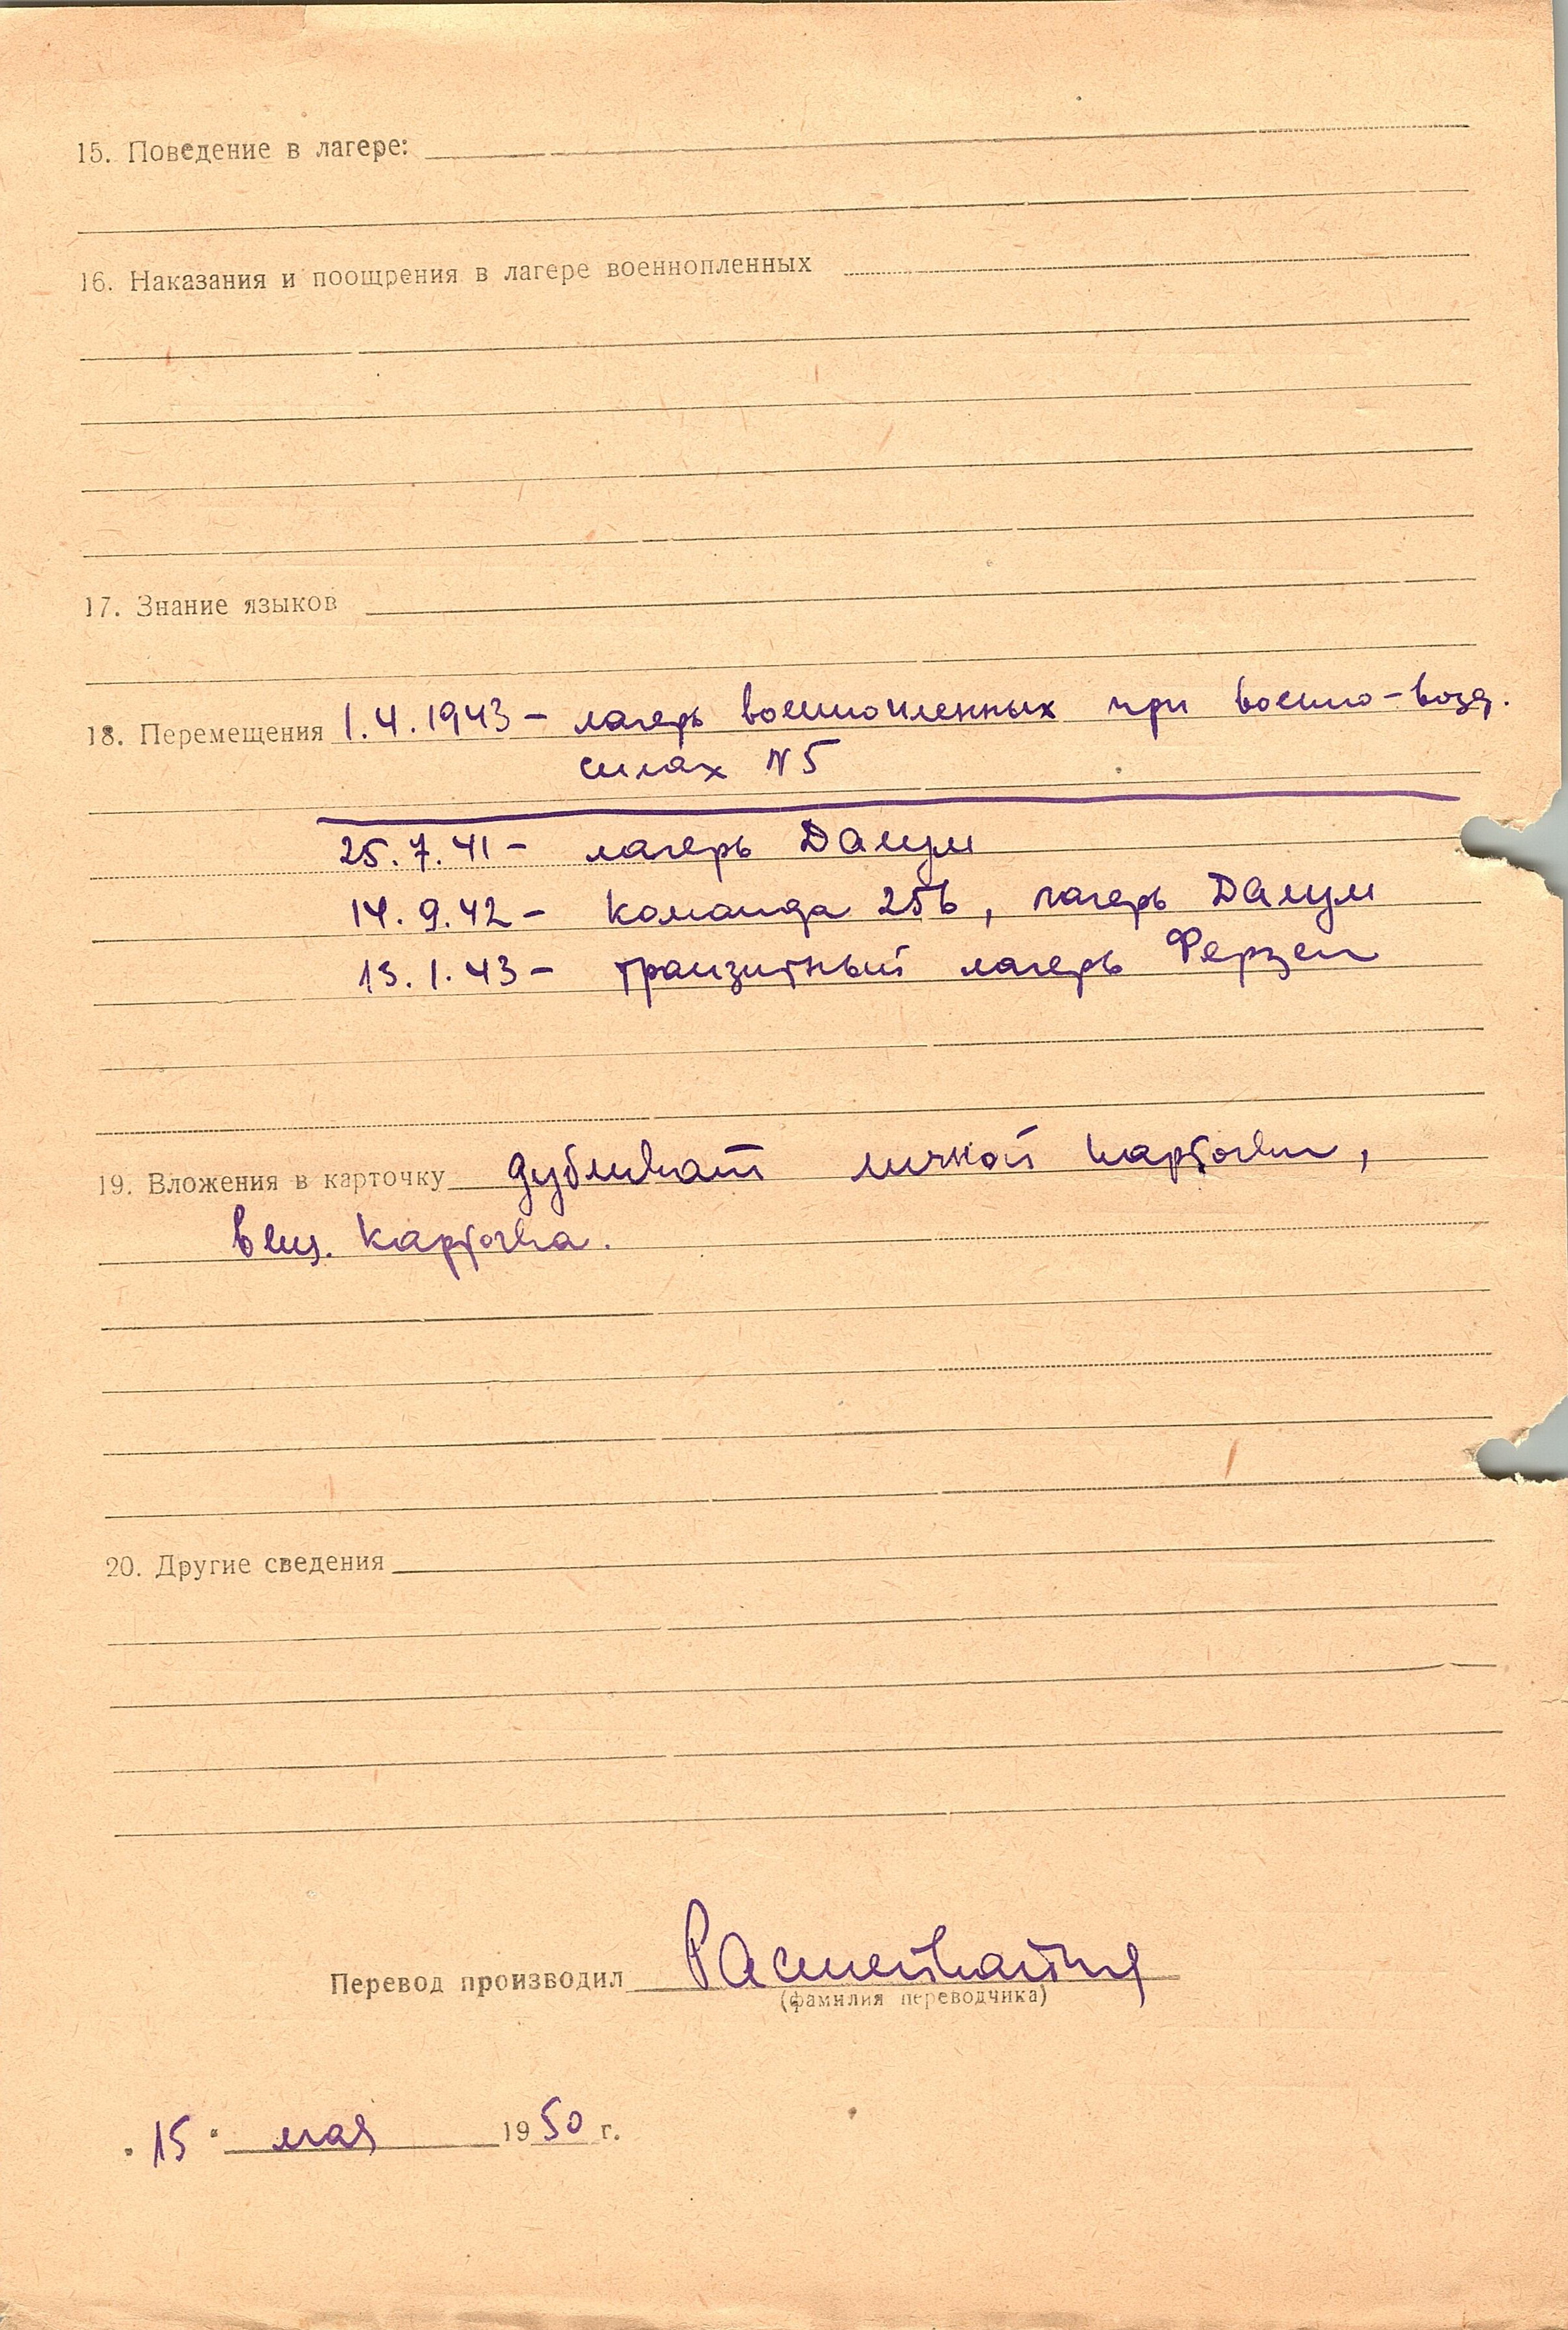 15. Поведение в лагере:
16. Наказания и поощрения в лагере военнопленных
17. Знание языков
18. Перемещения 1.4.1943 – лагерь военнопленных при военно-возд.
силах N5
25.7.41 – лагерь Далум
14.9.42 – команда 256, лагерь Далум
13.1.43 – транзитный лагерь Ферзен
19. Вложения в карточку дубликат личной карточки,
вещ. карточка.
20. Другие сведения
Перевод производил
(фамилия переводчика)
"15" мая 1950 г.